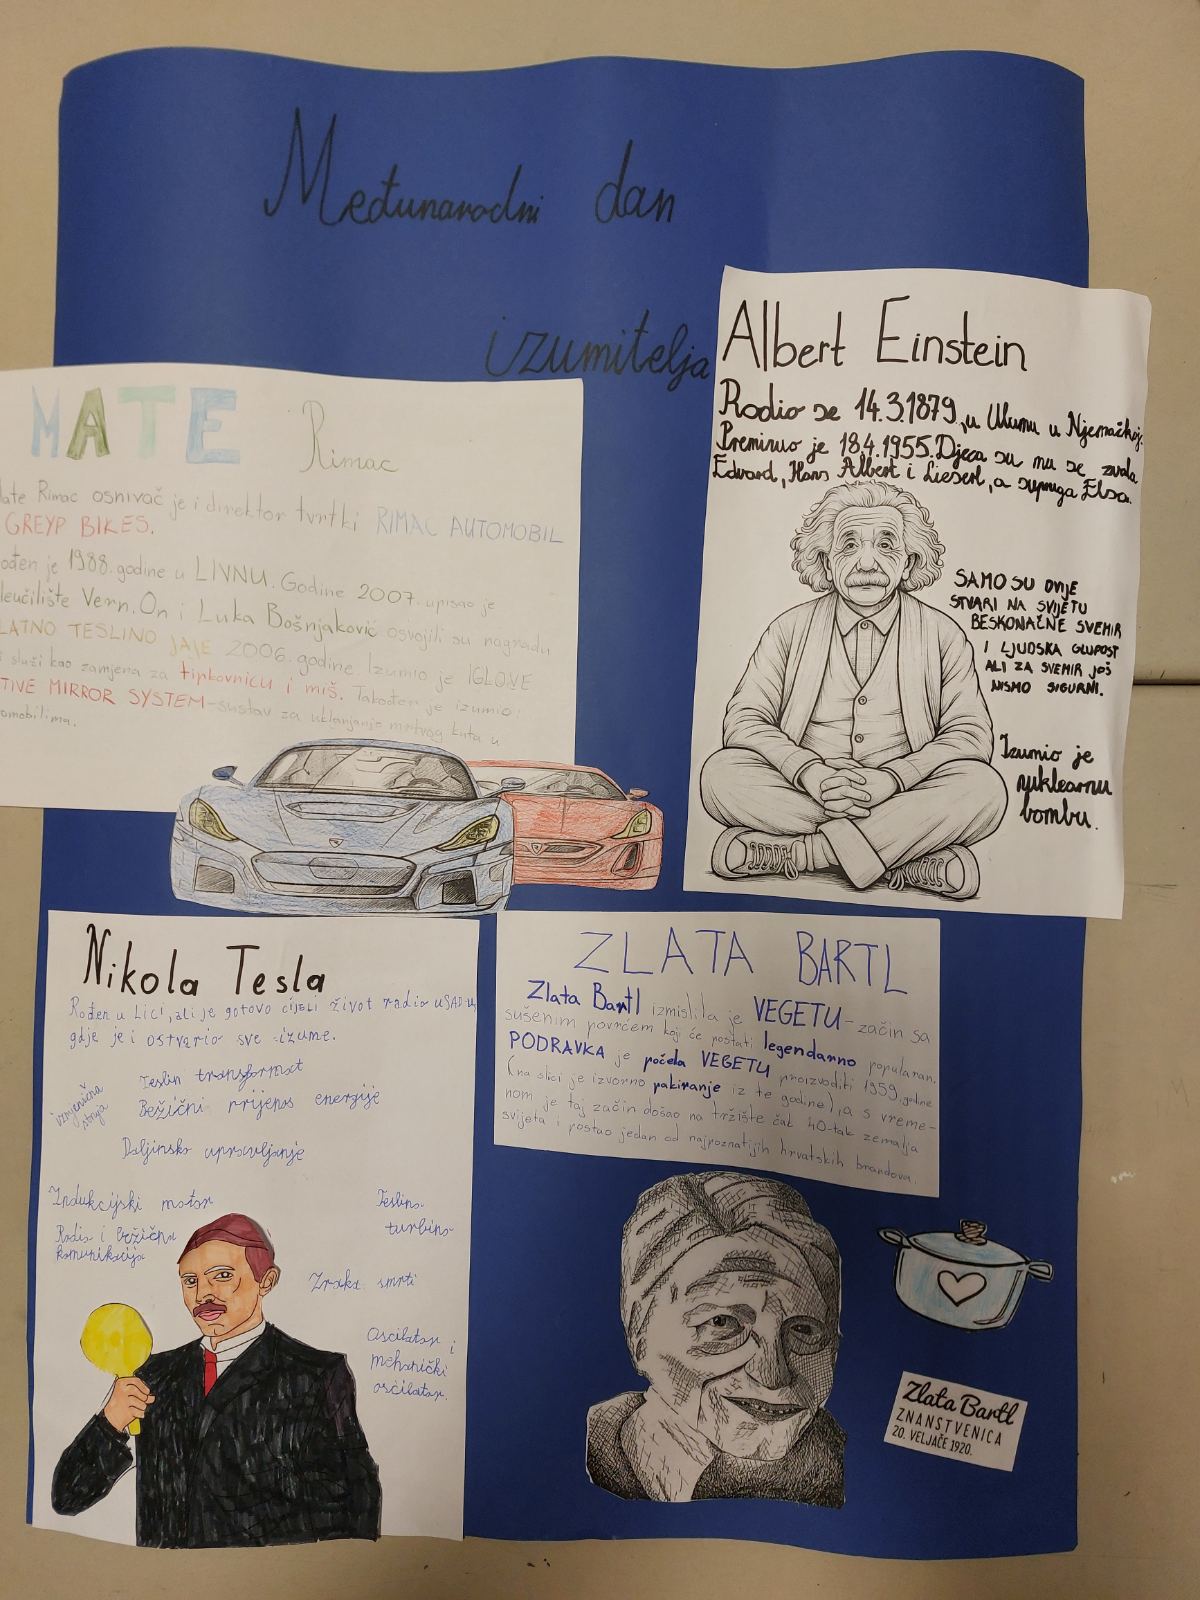 Međunarodni dan
izumitelja
MATE Rimac
ate Rimac osnivač je i direktor tvrtki RIMAC AUTOMOBIL
GREYP BIKES.
ođen je 1988. godine u LIVNU. Godine 2007. upisao je
leučilište Vern. On i Luka Bošnjaković osvojili su nagradu
LATNO TESLINO JAJE 2006. godine Izumio je IGLOVE
i služi kao zamjena za tipkovnicu i miš. Također je izumio:
TIVE MIRROR SYSTEM-sustav za uklanjanje mrtvog kuta u
omobilima.
Albert Einstein
Rodio se 14.3.1879. u Ulumu u Njemačkoj.
Preminuo je 18.4.1955. Djeca su mu se zvala
Edvard, Hans Albert i Lieserl, a supruga Elsa.
SAMO SU DVIJE
STVARI NA SVIJETU
BESKONAČNE SVEMIR
I LJUDSKA GLUPOST
ALI ZA SVEMIR JOŠ
NISMO SIGURNI.
Izumio je
nuklearnu
bombu.
Nikola Tesla
Rođen u Lici, ali je gotovo cijeli život radio u SAD-u,
gdje je i ostvario sve izume.
izmjenična
struja
Teslin transformat
Bežični prijenos energije
Daljinsko upravljanje
Indukcijski motor
Radio i bežična
komunikacija
Teslina
turbina
Zraka smrti
Oscilator i
mehanički
oscilator.
ZLATA BARTL
Zlata Bartl izmislila je VEGETU-začin sa
sušenim povrćem koj će postati legendarno popularan.
PODRAVKA je počela VEGETU proizvoditi 1959. godine
(na slici je izvorno pakiranje iz te godine), a s vreme-
nom je taj začin došao na tržište čak 40-tak zemalja
svijeta i postao jedan od najpoznatijih hrvatskih brandova.
Zlata Bartl
ZNANSTVENICA
20. VELJAČE 1920.